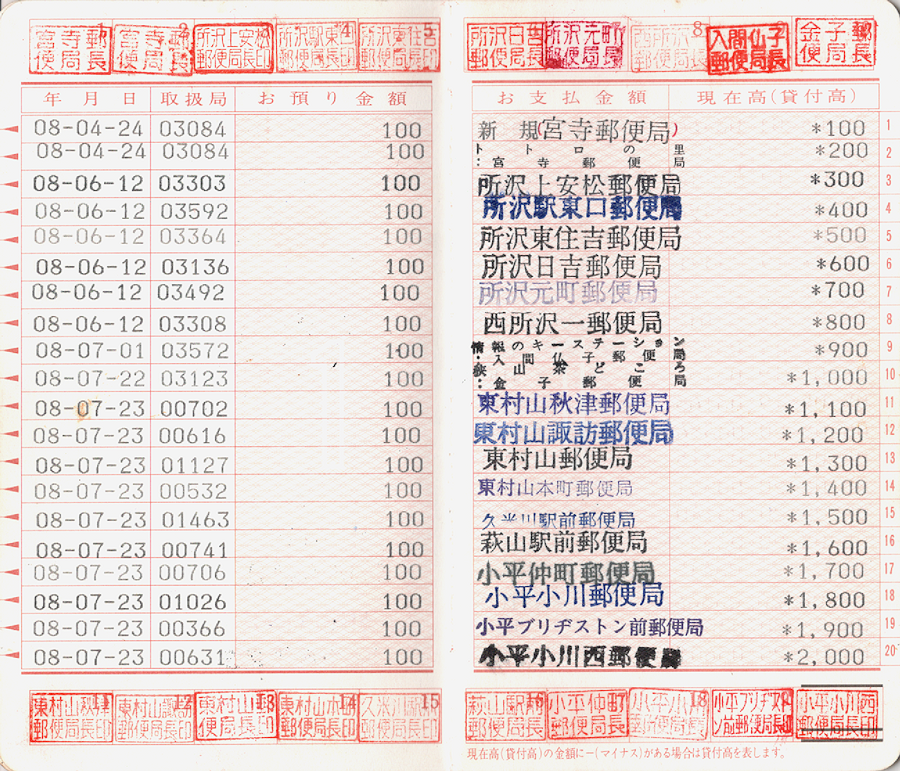 宮寺郵便局長 1 宮寺郵便局長 2 所沢上安松郵便局長印 所沢駅東口郵便局長印 4 所沢東住吉郵便局長印 5
所沢日吉郵便局長 所沢元町郵便局長 西所沢一郵便局長 8 入間仏子郵便局長 金子郵便局長
年月日 取扱局 お預り金額 お支払金額 現在高(貸付高)
08-04-24 03084 100 新規(宮寺郵便局) *100 1
08-04-24 03084 100 トトロの里:宮寺郵便局 *200 2
08-06-12 03303 100 所沢上安松郵便局 *300 3
08-06-12 03592 100 所沢駅東口郵便局 *400 4
08-06-12 03364 100 所沢東住吉郵便局 *500 5
08-06-12 03136 100 所沢日吉郵便局 *600 6
08-06-12 03492 100 所沢元町郵便局 *700 7
08-06-12 03308 100 西所沢一郵便局 *800 8
08-07-01 03572 100 情報のキーステーション:入間仏子郵便局 *900 9
08-07-22 03123 100 狭山茶どころ:金子郵便局 *1,000 10
08-07-23 00702 100 東村山秋津郵便局 *1,100 11
08-07-23 00616 100 東村山諏訪郵便局 *1,200 12
08-07-23 01127 100 東村山郵便局 *1,300 13
08-07-23 00532 100 東村山本町郵便局 *1,400 14
08-07-23 01463 100 久米川駅前郵便局 *1,500 15
08-07-23 00741 100 萩山駅前郵便局 *1,600 16
08-07-23 00706 100 小平仲町郵便局 *1,700 17
08-07-23 01026 100 小平小川郵便局 *1,800 18
08-07-23 00366 100 小平ブリヂストン前郵便局 *1,900 19
08-07-23 00631 100 小平小川西郵便局 *2,000 20
東村山秋津郵便局長印 東村山諏訪郵便局長印 東村山郵便局長印 東村山本町郵便局長印 久米川駅前郵便局長印 15
萩山駅前郵便局長 小平仲町郵便局長 小平小川郵便局長印 18 小平ブリヂストン前郵便局長印 小平小川西郵便局長印
現在高(貸付高)の金額に-(マイナス)がある場合は貸付高を表します。